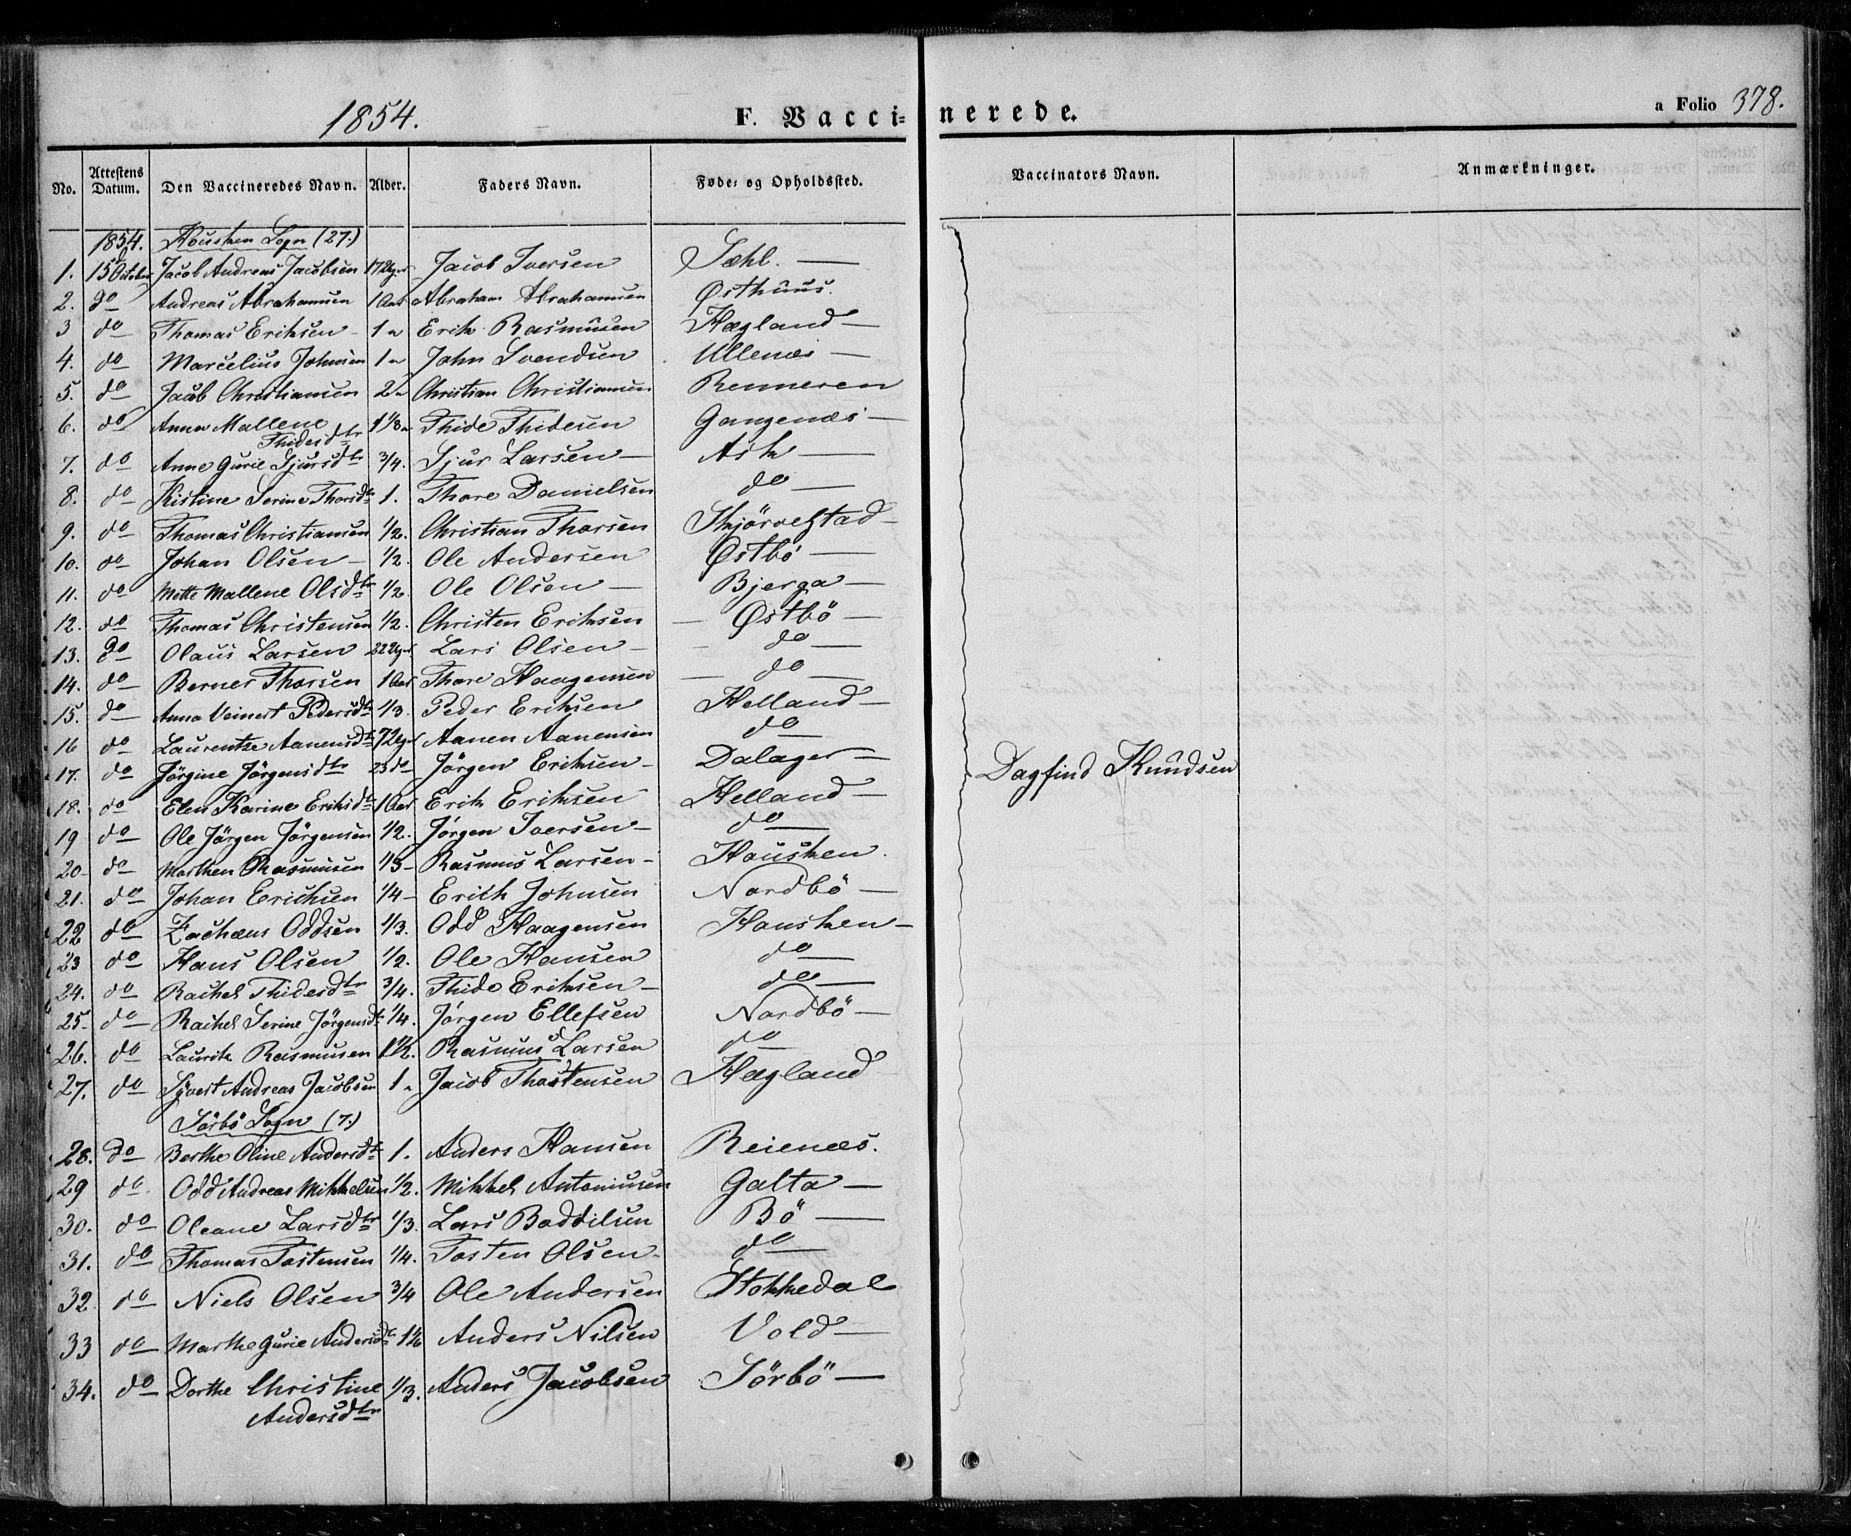 1854. F. Vaccinerede. a Folio 378.
No. Attestens Datum. Den Vaccineredes Navn. Alder. Faders Navn. Føde- og Opholdssted. Vaccinators Navn. Anmærkninger.
1854. Housken Sogn (27.)
1. 15 October Jacob Andreas Jacobsen 17 Uger Jacob Iversen Sæhl. —
2. do Andreas Abrahamsen 1 Aar Abraham Abrahamsen Østhuus.
3 do Thomas Eriksen 1 " Erik Rasmusen Hægland —
4. do Marcelius Johnsen 1 " John Svendsen Ullenæs —
5. do Jacob Christiansen 2 " Christian Christiansen Renneren
6. do Anna Mallene Thidesdtr 1 1/3 " Thide Thidesen Gangenæs —
7. do Anne Gurie Sjursdtr 3/4. Sjur Larsen — Ask —
8. do Kistine Serine Thorsdtr 1. Thore Danielsen do —
9. do Thomas Christiansen 1/2. Christian Thorsen Skjørvestad —
10. do Johan Olsen — 1/2. Ole Andersen Østbö —
11. do Mette Mallene Olsdtr 1/2. Ole Olsen — Bjerga —
12. do Thomas Christensen 1/2. Christen Eriksen — Østbö —
13. do Olaus Larsen 22 Uger Lars Olsen — do —
14. do Berner Thorsen 1 Aar Thore Haagensen — do —
15. do Anna Veinert Pedersdtr 1/3. Peder Eriksen Helland —
16 do Laurentze Aanensdtr 72 Uger Aanen Aanensen do
17. do Jörgine Jörgensdtr 23 do Jörgen Eriksen — Dalager — Dagfind Knudsen
18. do Elen Karine Eriksdtr 1 Aar Erik Eriksen Helland —
19 do Ole Jörgen Jörgensen 1/2. Jörgen Iversen — do —
20 do Morthen Rasmusen 1/3 — Rasmus Larsen — Housken.
21. do Johan Erichsen 1/4 — Erich Johnsen Nordbö —
22 do Zachæus Oddsen 1/3. Odd Haagensen Housken —
23 do Hans Olsen 1/2. Ole Hansen do
24. do Rachel Thidesdtr 3/4. Thide Eriksen — do
25 do Rachel Serine Jörgensdtr 1/4. Jörgen Ellefsen Nordbö —
26. do Laurits Rasmusen 1 1/2. Rasmus Larsen do
27. do Sjvert Andreas Jacobsen 1 " Jacob Thostensen Hægland
Sörbö Sogn (7.)
28. do Berthe Oline Andersdtr 1. Anders Hansen Reienæs.
29 do Odd Andreas Mikkelsen 1/2. Mikkel Antoniusen Galta —
30. do Oleane Larsdtr 1/3. Lars Boddilsen Bö —
31. do Thomas Tostensen 1/4. Tosten Olsen — do
32 do Niels Olsen 3/4 Ole Andersen Stokkedal
33 do Marthe Gurie Andersdtr 1 1/2 Anders Nilsen Vold —
34. do Dorthe Christine Andersdtr 1/3. Anders Jacobsen Sörbö —